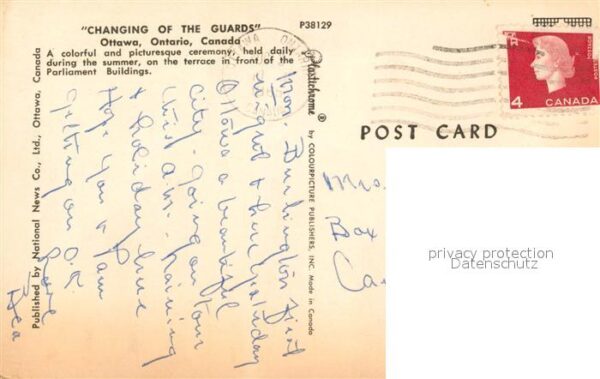 "CHANGING OF THE GUARDS"
Ottawa, Ontario, Canada
A colorful and picturesque ceremony, held daily
during the summer, on the terrace in front of the
Parliament Buildings.
P38129
Published by National News Co., Ltd., Ottawa, Canada
Plastichrome ® by COLOURPICTURE PUBLISHERS, INC. Made in Canada
POST CARD
4 CANADA
Mon. Burlington first
night & here yesterday
Ottawa a beautiful
city. Going on tour
this a.m. - raining
& holiday here
Hope you & Pam
getting on O.K.
Love
Bea
Mrs.
Box
Ca
privacy protection
Datenschutz